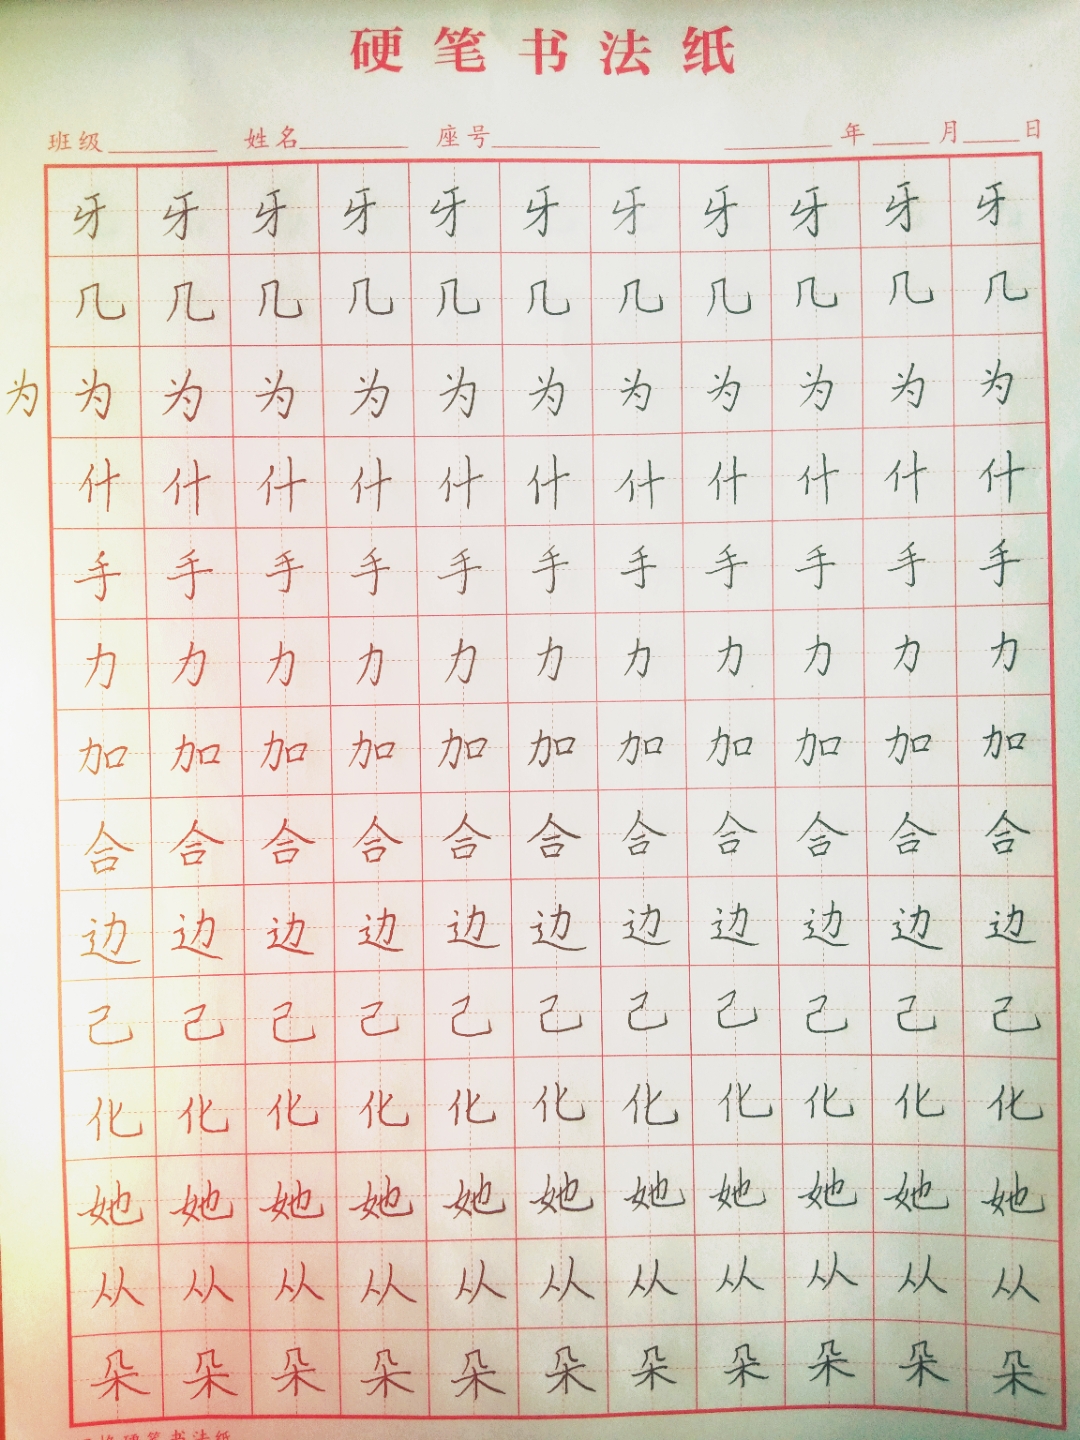 硬笔书法纸
班级 姓名 座号 年 月 日
牙 牙 牙 牙 牙 牙 牙 牙 牙 牙 牙
几 几 几 几 几 几 几 几 几 几 几
为 为 为 为 为 为 为 为 为 为 为 为
什 什 什 什 什 什 什 什 什 什 什
手 手 手 手 手 手 手 手 手 手 手
力 力 力 力 力 力 力 力 力 力 力
加 加 加 加 加 加 加 加 加 加 加
合 合 合 合 合 合 合 合 合 合 合
边 边 边 边 边 边 边 边 边 边 边
己 己 己 己 己 己 己 己 己 己 己
化 化 化 化 化 化 化 化 化 化 化
她 她 她 她 她 她 她 她 她 她 她
从 从 从 从 从 从 从 从 从 从 从
朵 朵 朵 朵 朵 朵 朵 朵 朵 朵 朵
格硬笔书法纸